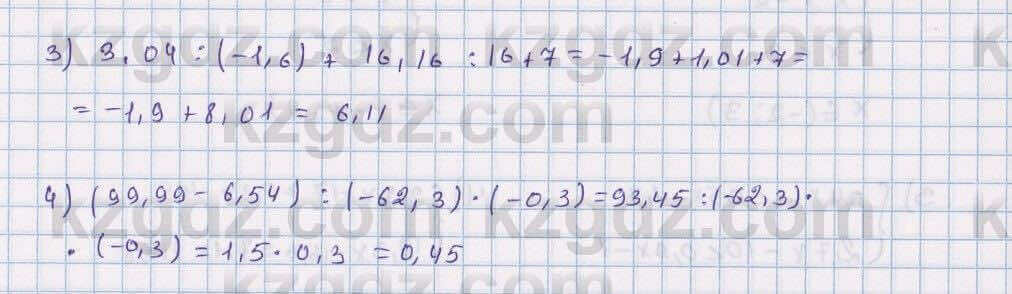 3) 3.04 : (-1,6) + 16,16 : 16 + 7 = -1,9 + 1,01 + 7 =
= -1,9 + 8,01 = 6,11
4) (99,99 - 6,54) : (-62,3) · (-0,3) = 93,45 : (-62,3) ·
· (-0,3) = 1,5 · 0,3 = 0,45
kzgdz.com
kzgdz.com
kzgdz.com